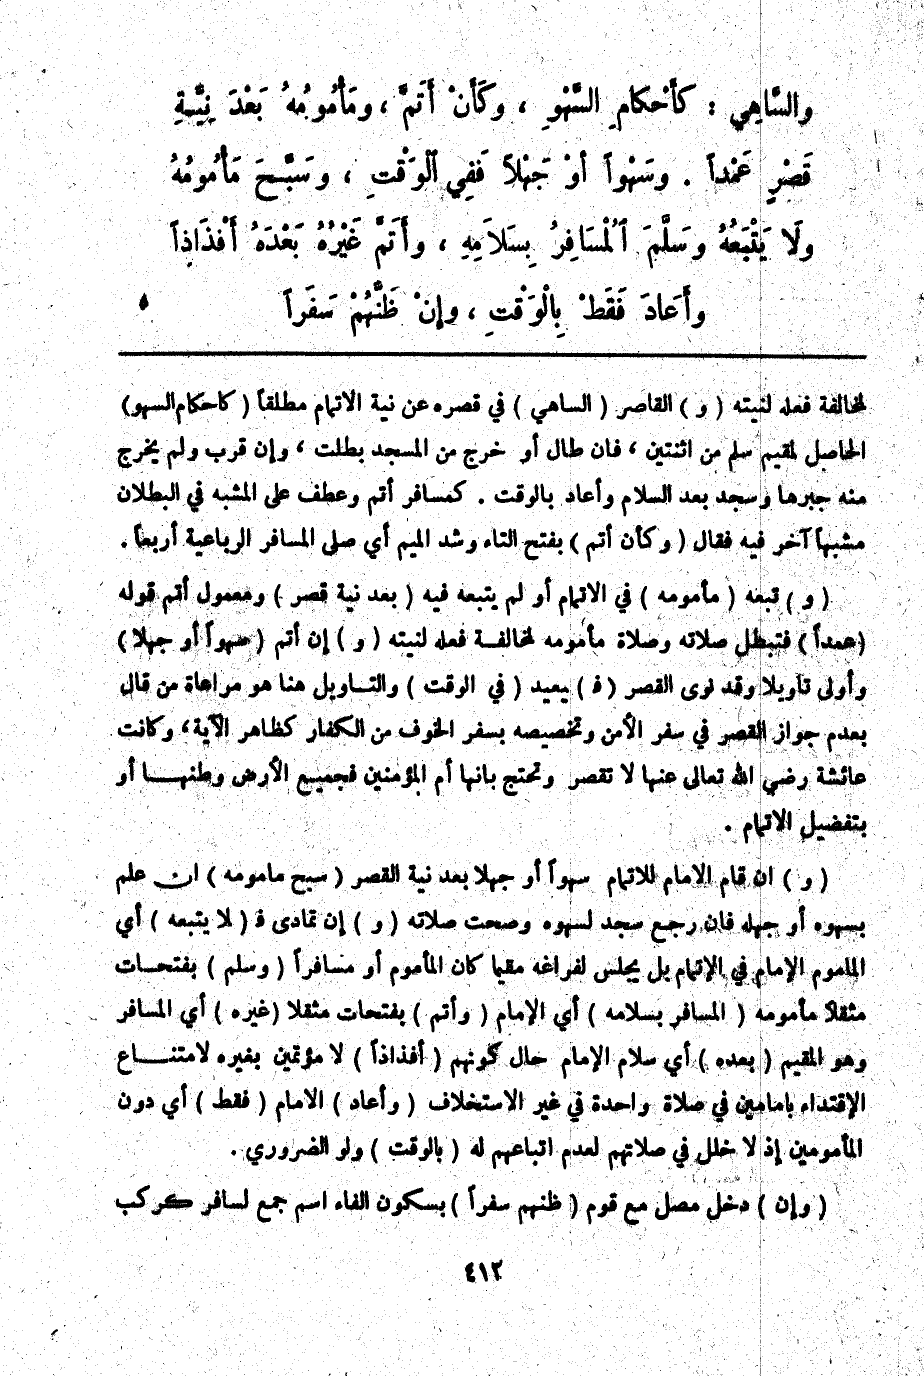 والسَّاهِي : كَأَحْكَامِ السَّهْوِ ، وكَأَنْ أَتَمَّ ، ومَأْمُومُهُ بَعْدَ نِيَّةِ
قَصْرٍ عَمْداً . وسَهْواً أوْ جَهْلاً فَفِي ٱلْوَقْتِ ، وسَبَّحَ مَأْمُومُهُ
ولَا يَتْبَعُهُ وسَلَّمَ ٱلْمُسَافِرُ بِسَلَامِهِ ، وأَتَمَّ غَيْرُهُ بَعْدَهُ أَفْذَاذاً
وأَعَادَ فَقَطْ بِالْوَقْتِ ، وإنْ ظَنَّهُمْ سَفَراً
لمخالفة فعله لنيته ( و ) القاصر ( الساهي ) في قصره عن نية الاتمام مطلقاً ( كاحكام السهو )
الحاصل لمقيم سلم من اثنتين ، فان طال أو خرج من المسجد بطلت ، وإن قرب ولم يخرج
منه جبرها وسجد بعد السلام وأعاد بالوقت . كمسافر أتم وعطف على المشبه في البطلان
مشبهاً آخر فيه فقال ( وكأن أتم ) بفتح التاء وشد الميم أي صلى المسافر الرباعية أربعاً .
( و ) تبعه ( مأمومه ) في الاتمام أو لم يتبعه فيه ( بعد نية قصر ) ومعمول أتم قوله
( عمداً ) فتبطل صلاته وصلاة مأمومه لمخالفــة فعله لنيته ( و ) إن أتم ( سهواً أو جهلا )
وأولى تاويلا وقد نوى القصر ( ف ) يعيد ( في الوقت ) والتــاويل هنا هو مراعاة من قال
بعدم جواز القصر في سفر الأمن وتخصيصه بسفر الخوف من الكفار كظاهر الآية، وكانت
عائشة رضي الله تعالى عنها لا تقصر وتحتج بانها أم المؤمنين فجميــع الأرض وطنهــا أو
بتفضيل الاتمام .
( و ) ان قام الامام للاتمام سهواً أو جهلا بعد نية القصر ( سبح مامومه ) ان علم
بسهوه أو جهله فان رجع سجد لسهوه وصحت صلاته ( و ) إن تمادى ف ( لا يتبعه ) أي
الماموم الإمام في الإتمام بل يجلس لفراغه مقيما كان المأموم أو مسافراً ( وسلم ) بفتحــات
مثقلاً مأمومه ( المسافر بسلامه ) أي الإمام ( وأتم ) بفتحات مثقلا ( غيره ) أي المسافر
وهو المقيم ( بعده ) أي سلام الإمام حال كونهم ( أفذاذاً ) لا مؤتمين بغيره لامتنــاع
الإقتداء بامامين في صلاة واحدة في غير الاستخلاف ( وأعاد ) الامام ( فقط ) أي دون
المأمومين إذ لا خلل في صلاتهم لعدم اتباعهم له ( بالوقت ) ولو الضروري .
( وإن ) دخل مصل مع قوم ( ظنهم سفراً ) بسكون الفاء اسم جمع لسافر كركب
٤١٢